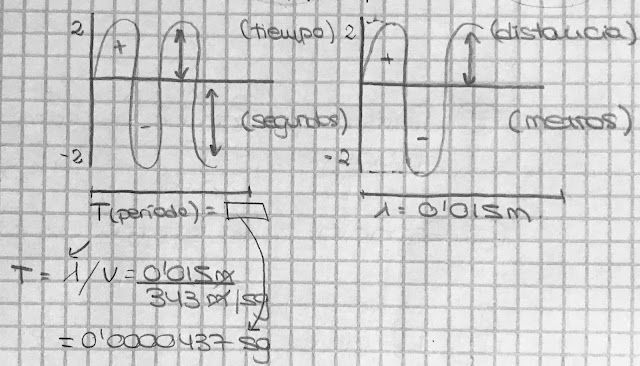 2 (tiempo)
+
-
(segundos)
-2
T (periodo) =
2 (distancia)
+
-
(metros)
-2
λ = 0'015m
T = λ/V = 0'015m / 343 m/sg
= 0'0000437 sg